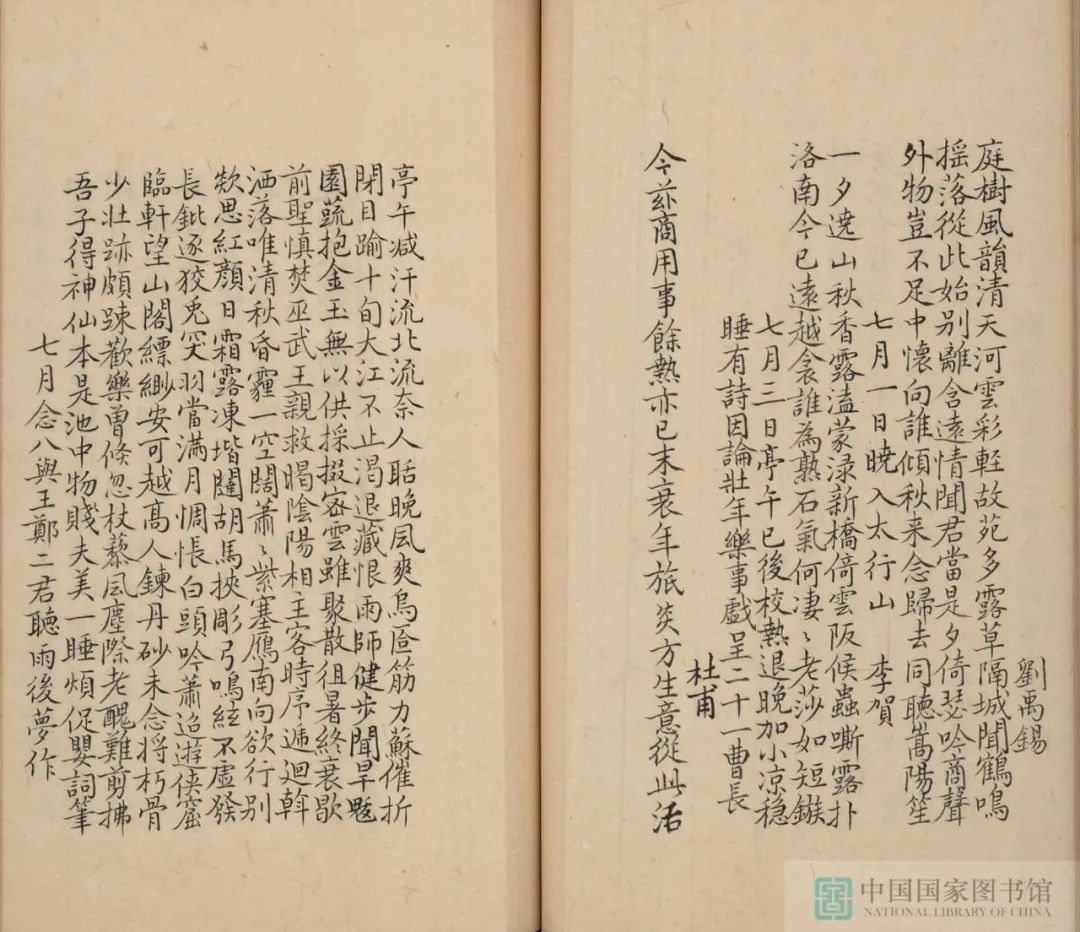 劉禹錫
庭樹風韻清天河雲彩輕故苑多露草隔城聞鶴鳴
搖落從此始别離含遠情聞君當是夕倚瑟吟商聲
外物豈不足中懷向誰傾秋来念歸去同聽嵩陽笙
七月一日曉入太行山 李賀
一夕遶山秋香露溘蒙渌新橋倚雲阪候蟲嘶露扑
洛南今已遠越衾誰為熟石氣何凄〻老莎如短鏃
七月三日亭午已後校熱退晚加小凉穩
睡有詩因論壯年樂事戲呈二十一曹長
杜甫
今兹商用事餘熱亦已末衰年旅炎方生意從此活
亭午減汗流北流奈人聒晚風爽烏匼筋力蘇僬折
閉目踰十旬大江不止渴退藏恨雨師健步聞旱魃
園蔬抱金玉無以供採掇密雲雖聚散徂暑終衰歇
前聖慎焚巫武王親救暍陰陽相主客時序遞迴斡
洒落唯清秋昏霾一空闊蕭〻紫塞鴈南向欲行别
欻思紅顔日霜露凍堦闥胡馬挾彫弓鳴絃不虛發
長鈚逐狡兎突羽當滿月惆悵白頭吟蕭迢遊侠窟
臨軒望山閣縹緲安可越高人鍊丹砂未念将朽骨
少壯跡頗踈歡樂曽倏忽杖藜風塵際老醜難剪拂
吾子得神仙本是池中物賤夫美一睡煩促嬰詞筆
七月念八與王鄭二君聽雨後夢作
中国国家图书馆
NATIONAL LIBRARY OF CHINA